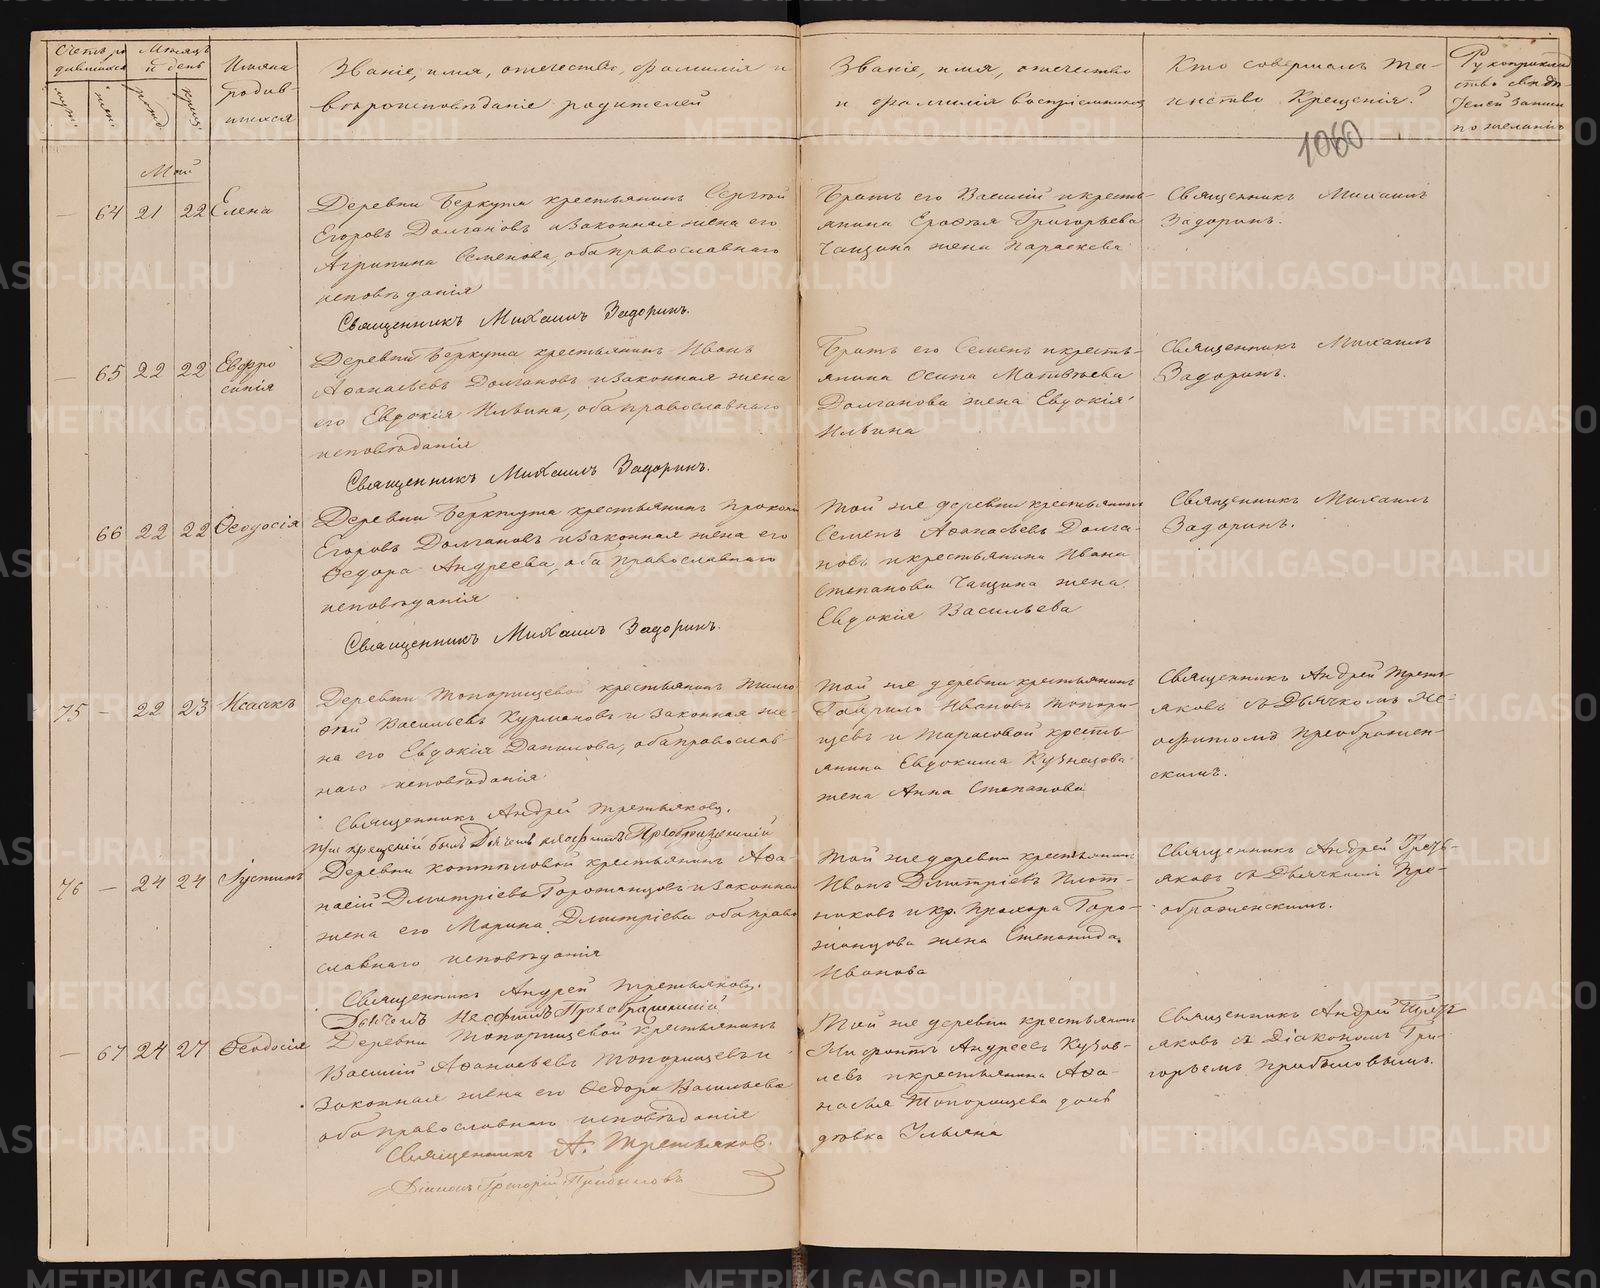 Счетъ ро
дившихся
муж.
жен.
Мѣсяцъ
и день
рожд.
крещ.
Имяна
родив-
шихся
Званіе, имя, отечество, фамилія и
вѣроисповѣданіе родителей
Званіе, имя, отечество
и фамилія воспріемниковъ
Кто совершалъ та-
инство Крещенія?
Рукоприклад
ство свидѣ-
телей записи
по желанію
1060
Май
— 64 21 22 Елена
Деревни Беркута крестьянинъ Сергѣй
Егоровъ Долгановъ и законная жена его
Агрипина Семенова, оба православнаго
исповѣданія
Священникъ Михаилъ Задоринъ.
Братъ его Василій и кресть-
янина Ерофея Григорьева
Чащина жена Параскева
Священникъ Михаилъ
Задоринъ.
— 65 22 22 Евфро
синія
Деревни Беркута крестьянинъ Иванъ
Афанасьевъ Долгановъ и законная жена
его Евдокія Ильина, оба православнаго
исповѣданія
Священникъ Михаилъ Задоринъ.
Братъ его Семенъ и кресть-
янина Осипа Матвѣева
Долганова жена Евдокія
Ильина
Священникъ Михаилъ
Задоринъ.
66 22 22 Ѳеодосія
Деревни Беркута крестьянинъ Прокопій
Егоровъ Долгановъ и законная жена его
Ѳедора Андреева, оба православнаго
исповѣданія
Священникъ Михаилъ Задоринъ.
Той же деревни крестьянинъ
Семенъ Афанасьевъ Долга-
новъ и крестьянина Ивана
Степанова Чащина жена
Евдокія Васильева
Священникъ Михаилъ
Задоринъ.
75 — 22 23 Исаакъ
Деревни Топорищевой крестьянинъ Тимо
ѳей Васильевъ Курмановъ и законная же-
на его Евдокія Данилова, оба православ-
наго исповѣданія
Священникъ Андрей Третьяковъ.
При крещеніи былъ Дьячекъ Неофитъ Преображенскій
Той же деревни крестьянинъ
Гаврило Ивановъ Топори-
щевъ и Тарасовой кресть-
янина Евдокима Кузнецова
жена Анна Степанова
Священникъ Андрей Треть-
яковъ съ Дьячкомъ Не-
офитомъ Преображен-
скимъ.
76 — 24 24 Іустинъ
Деревни Котѣловой крестьянинъ Афа-
насій Дмитріевъ Горожанцовъ и законная
жена его Марина Дмитріева оба право
славнаго исповѣданія
Священникъ Андрей Третьяковъ.
Дьячекъ Неофитъ Преображенскій
Той же деревни крестьянинъ
Иванъ Дмитріевъ Плот-
никовъ и кр. Прохора Горо-
жанцова жена Степанида
Иванова
Священникъ Андрей Треть-
яковъ съ Дьячкомъ Пре-
ображенскимъ.
— 67 24 27 Ѳеодосія
Деревни Топорищевой крестьянинъ
Василій Афанасьевъ Топорищевъ и
законная жена его Ѳедора Васильева
оба православнаго исповѣданія
Священникъ А. Третьяковъ.
Діаконъ Григорій Прибыловъ
Той же деревни крестьянинъ
Ѳерапонтъ Андреевъ Кузов-
левъ и крестьянина Афа-
насья Топорищева дочь
дѣвка Ульяна
Священникъ Андрей Треть
яковъ съ Діакономъ Гри-
горьемъ Прибыловымъ.
METRIKI.GASO-URAL.RU